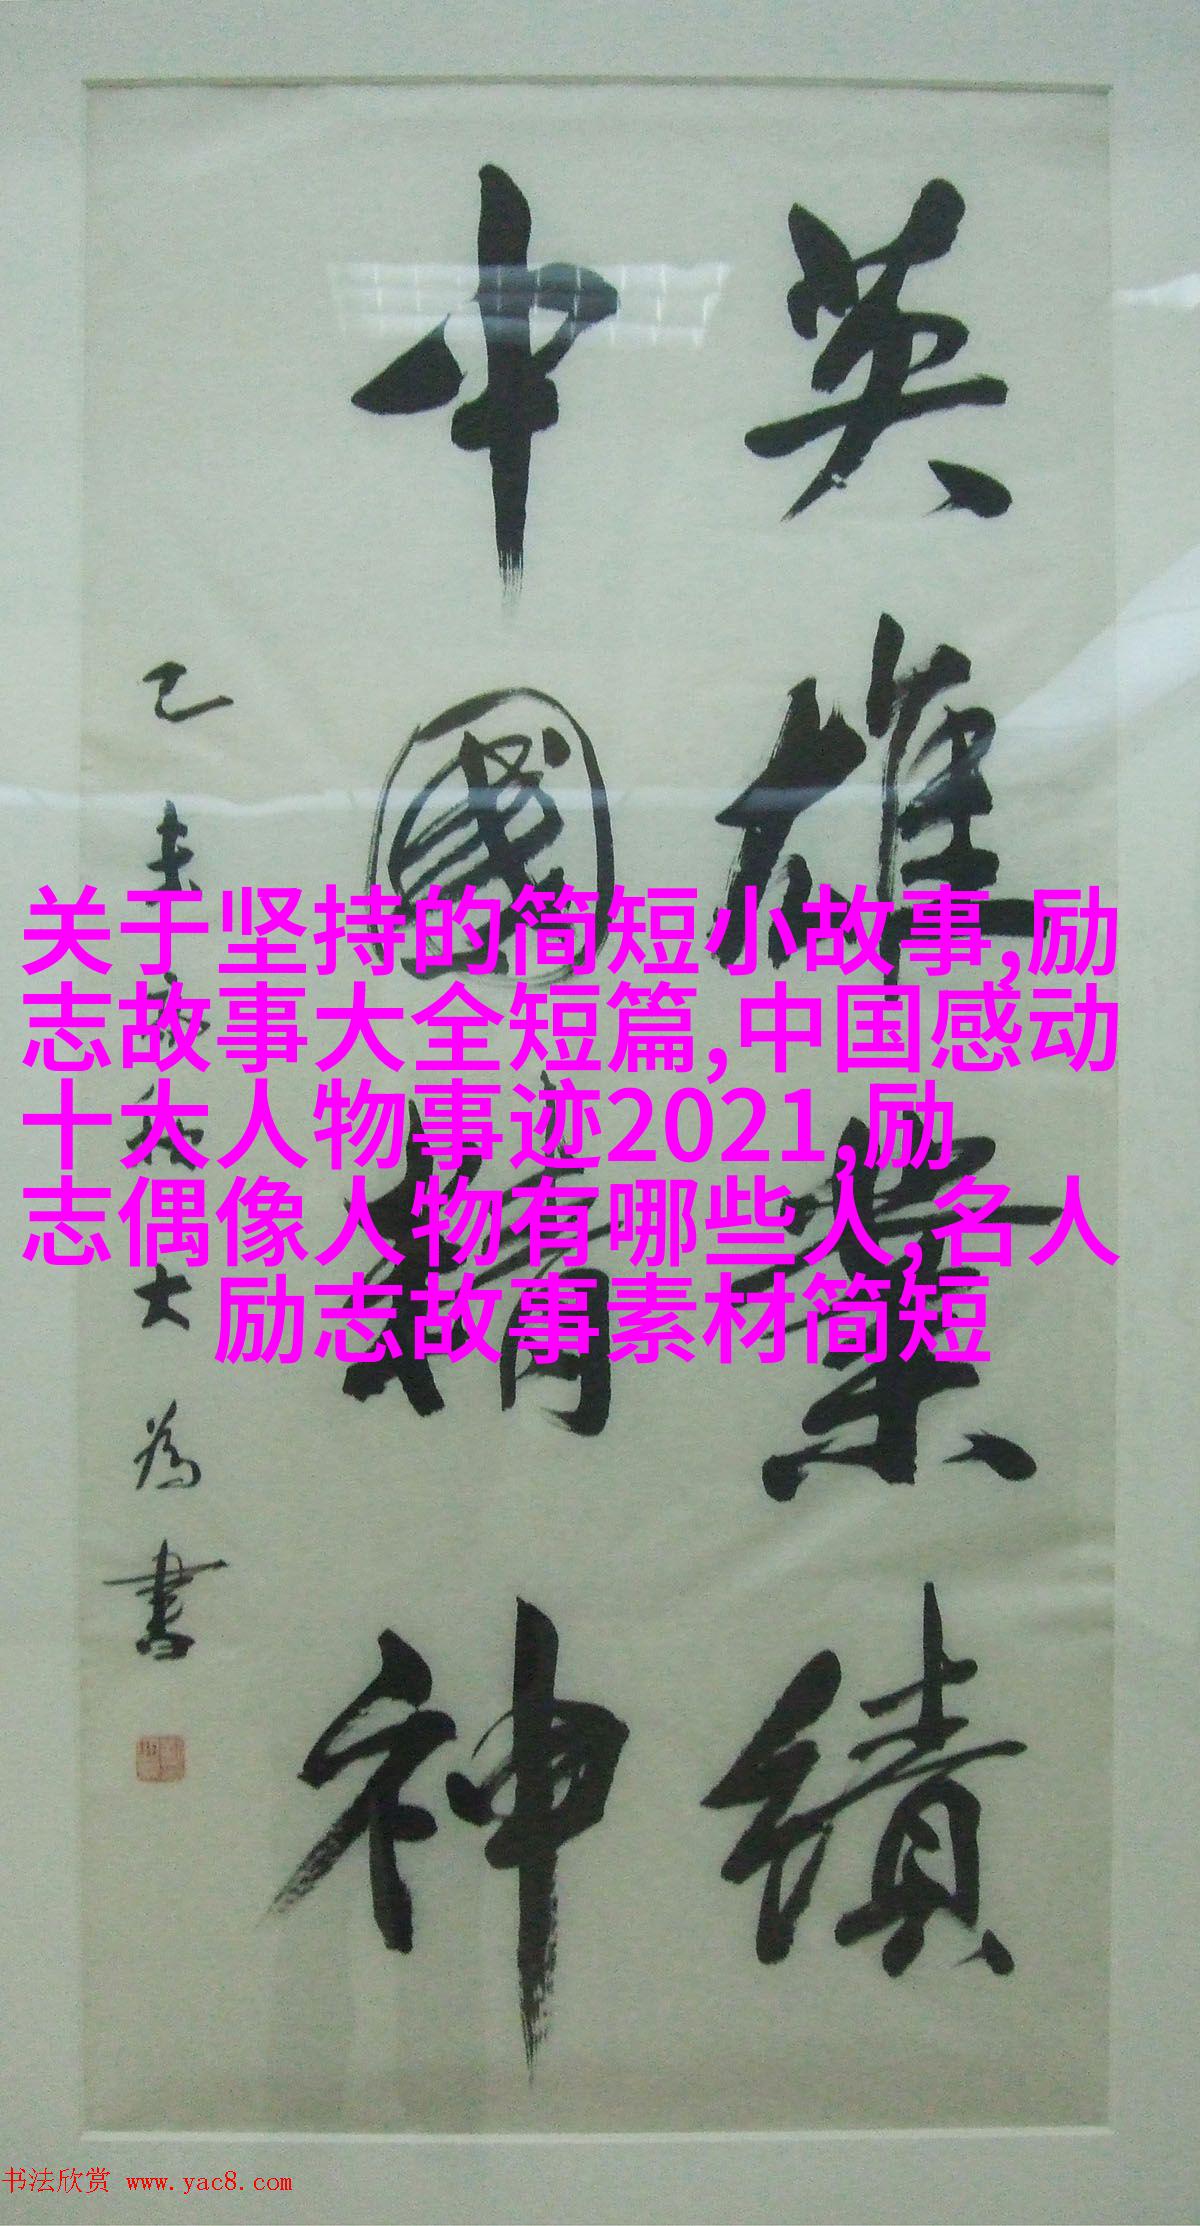 英雄業績
中國精神
己未
大為書
关于坚持的简短小故事,励
志故事大全短篇,中国感动
十大人物事迹2021,励
志偶像人物有哪些人,名人
励志故事素材简短
书法欣赏 www.yac8.com